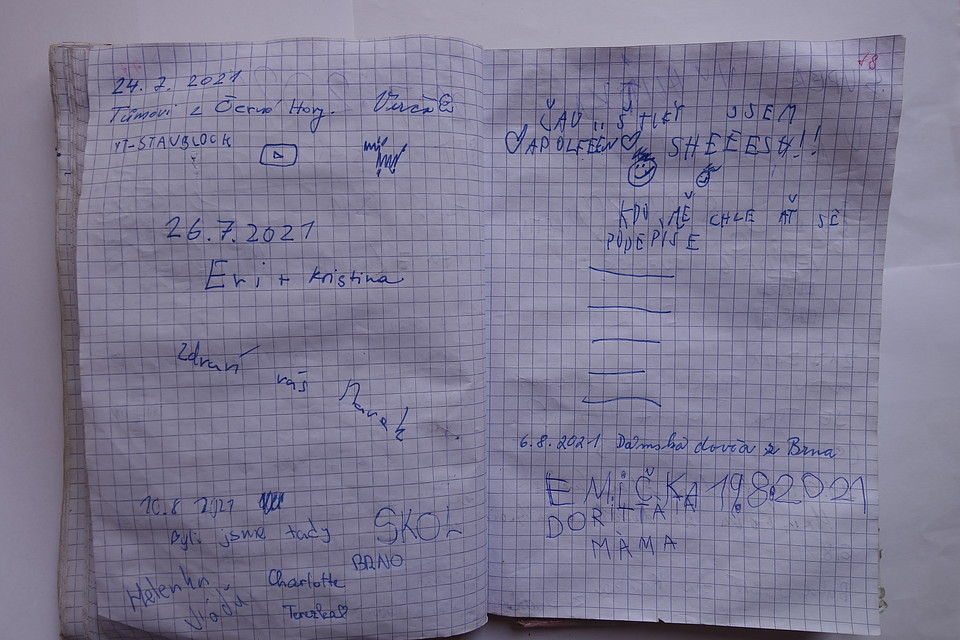 24.7.2021
Tůmovi z Černé Hory. Verča
YT-STAVBLOCK
26.7.2021
Eri + Kristina
Zdraví
vás
10.8 2021
Byli jsme tady
SKOL
BRNO
Charlotte
Terezka
18
ČAU, IŠTLEŤ JSEM
APOLEEEN SHEEESH!!
KDO MĚ CHCE AŤ SE
PODEPÍŠE
6.8.2021 Dámská dovča z Brna
EMIČKA 19.8.2021
DORI TAŤA
MÀMA